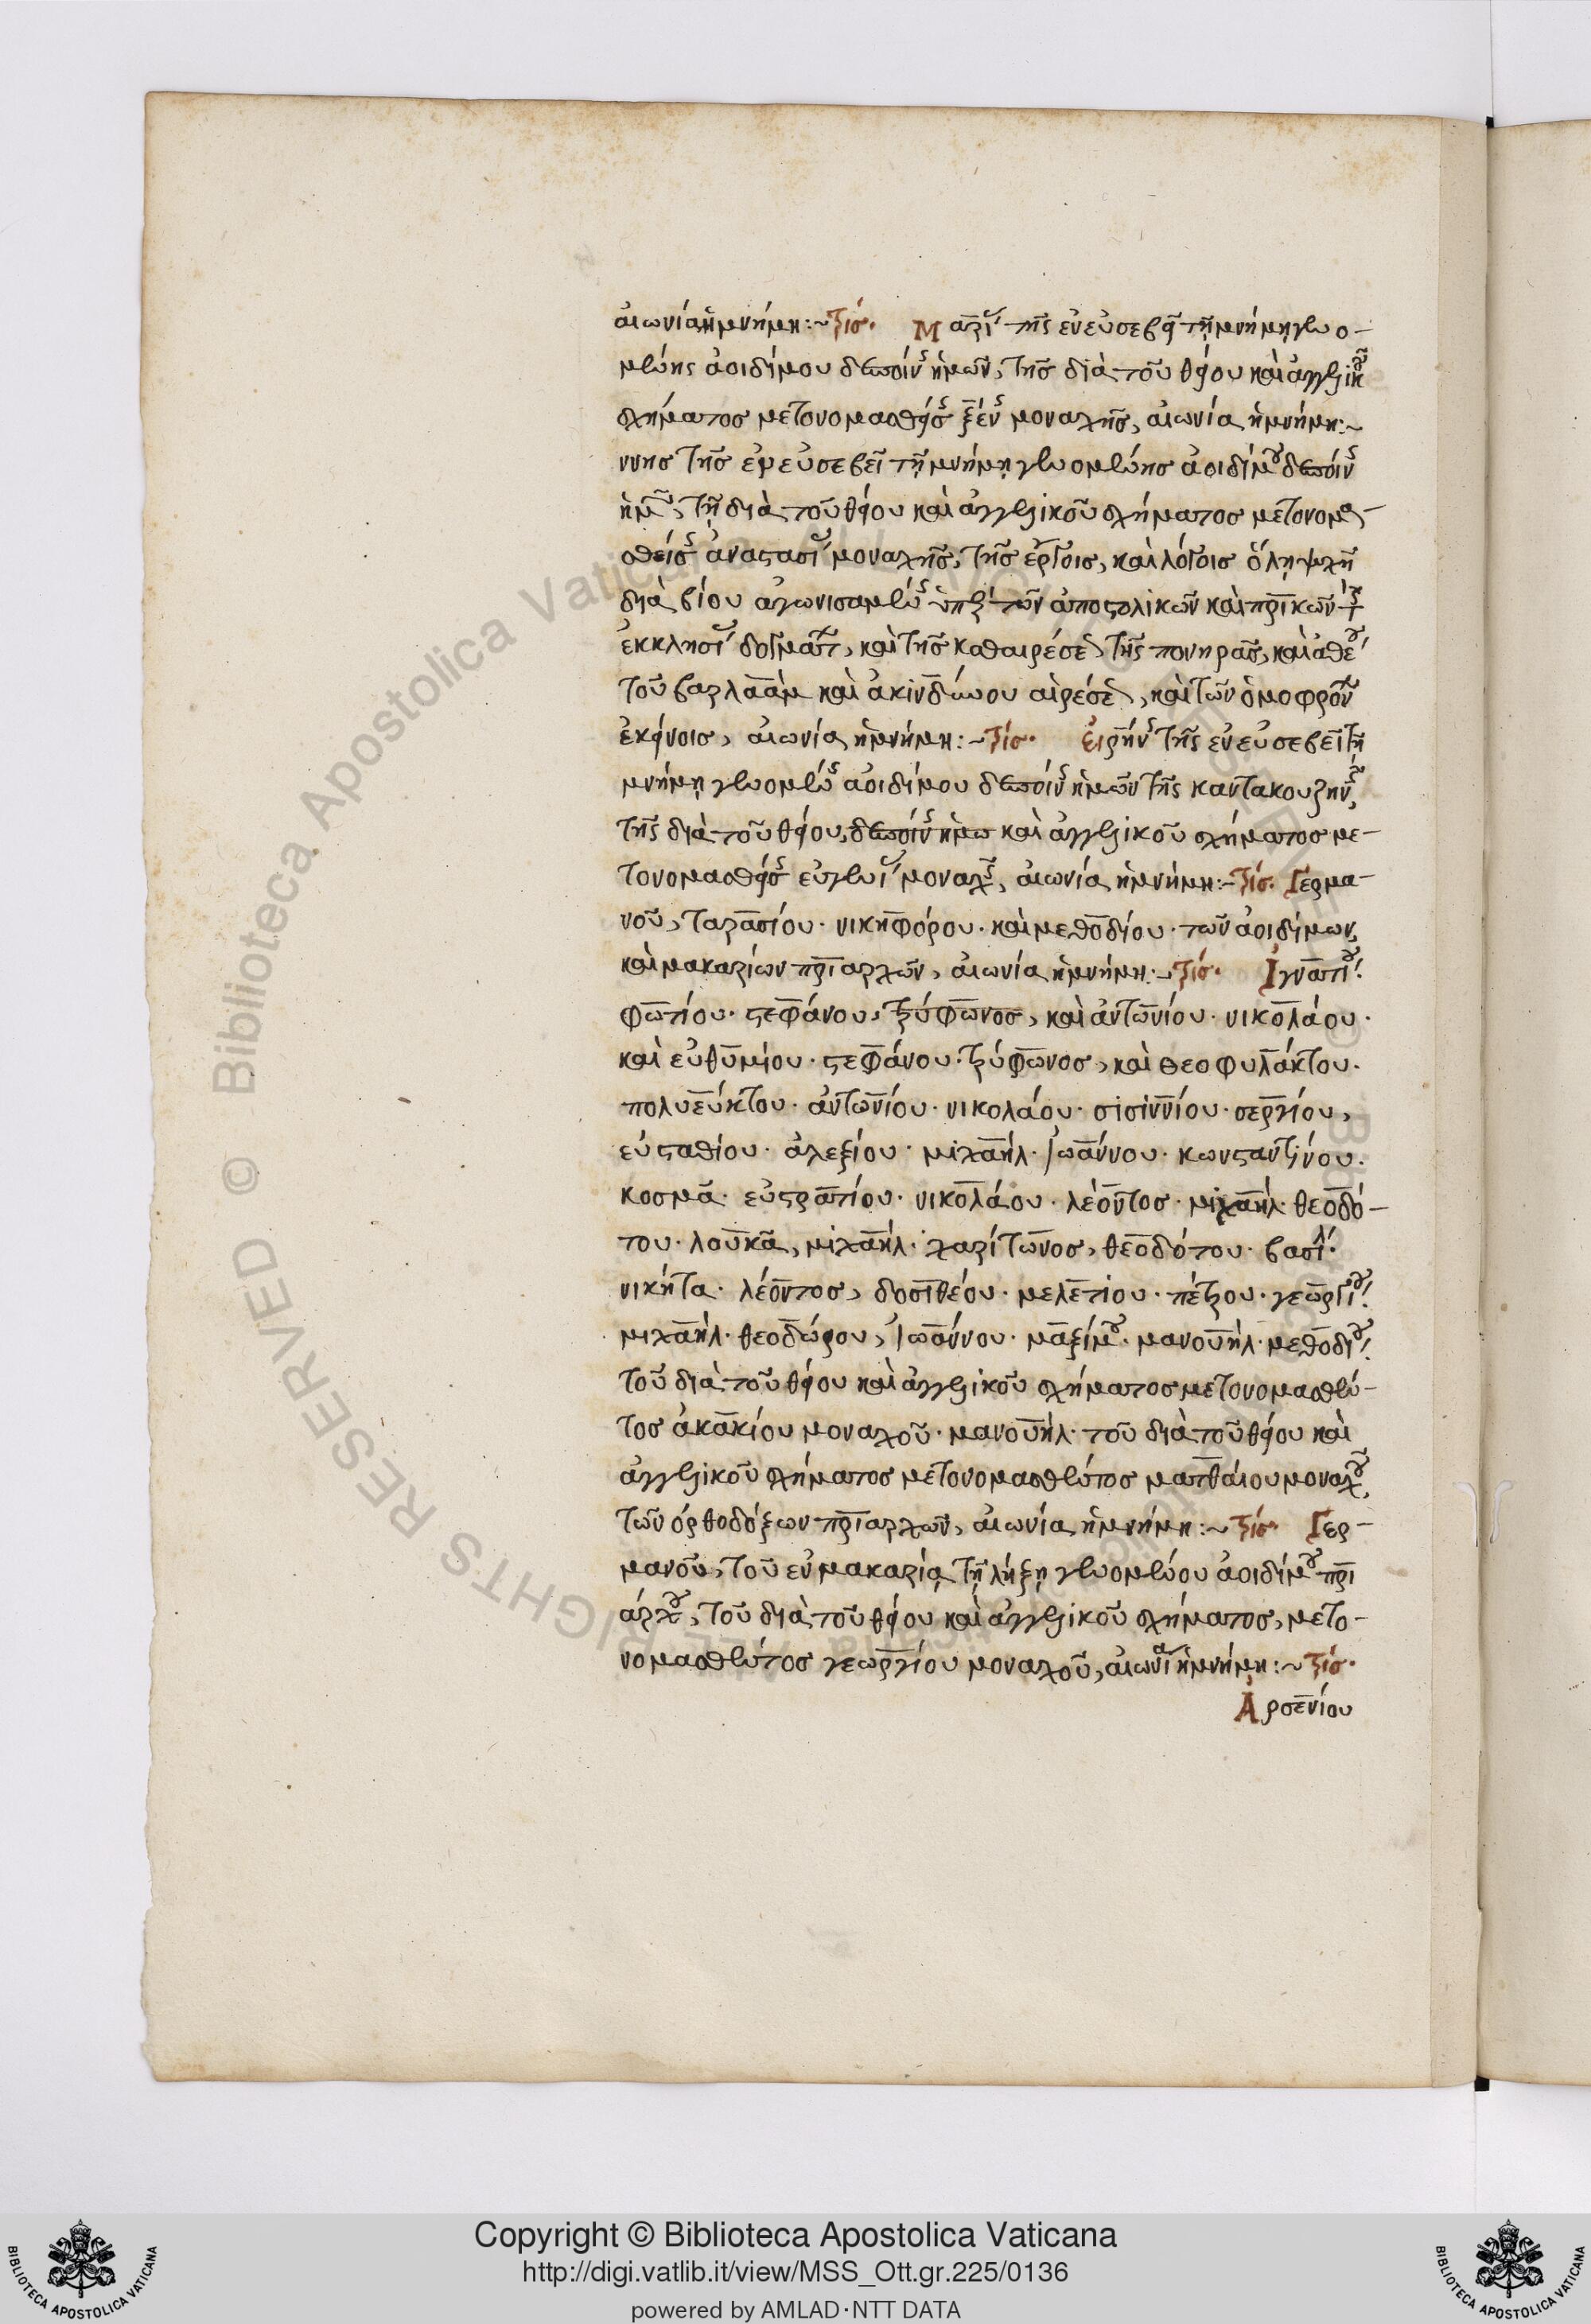 αἰωνία ἡ μνήμη :~ τρίς· Μαρί τῆς ἐν εὐσεβεῖ τῇ μνήμῃ γενο-
μένης ἀοιδίμου δεσποίν ἡμῶν, τῆς διὰ τοῦ θείου καὶ ἀγγελικ
σχήματος μετονομασθείσ ξέν μοναχῆς, αἰωνία ἡ μνήμη :~
ννης τῆς ἐν εὐσεβεῖ τῇ μνήμῃ γενομένης ἀοιδίμου δεσποίν
ἡμ, τῇ διὰ τοῦ θείου καὶ ἀγγελικοῦ σχήματος μετονομα-
σθείσ ἀναστασί μοναχῆς, τῆς ἔργοις, καὶ λόγοις ὅλῃ ψυχῇ
διὰ βίου ἀγωνισαμέν ὑπὲρ τῶν ἀποστολικῶν καὶ πρικῶν τ
ἐκκλησί δογμάτ, καὶ τῆς καθαιρέσε τῆς πονηρᾶς, καὶ ἀθέ
τοῦ βαρλαὰμ καὶ ἀκινδύνου αἱρέσε, καὶ τῶν ὁμοφρόν
ἐκείνοις, αἰωνία ἡ μνήμη :~ τρίς· Εἰρήν τῆς ἐν εὐσεβεῖ τῇ
μνήμῃ γενομέν ἀοιδίμου δεσποίν ἡμῶν τῆς καντακουζην,
τῆς διὰ τοῦ θείου, δεσποίν ἡμω καὶ ἀγγελικοῦ σχήματος με-
τονομασθείσ εὐγενί μοναχ, αἰωνία ἡ μνήμη :~ τρίς. Γερμα-
νοῦ, ταρασίου· νικηφόρου· καὶ μεθοδίου· τῶν ἀοιδίμων
καὶ μακαρίων πριαρχῶν, αἰωνία ἡ μνήμη :~ τρίς· Ἰγνατίου.
φωτίου· στεφάνου, τρύφωνος, καὶ ἀντωνίου· νικολάου·
καὶ εὐθυμίου· στεφάνου· τρύφωνος, καὶ θεοφυλάκτου.
πολυεύκτου· ἀντωνίου· νικολάου· σισιννίου· σεργίου,
εὐσταθίου· ἀλεξίου· μιχαήλ· Ἰωάννου· κωνσταντίνου.
κοσμᾶ· εὐστρατίου· νικολάου· λέοντος· μιχαήλ· θεοδό-
του· λουκᾶ, μιχαήλ· χαρίτωνος, θεοδότου· βασιλ·
νικήτα· λέοντος, δοσιθέου· μελετίου· πέτρου· γεωργίου.
μιχαήλ· θεοδώρου, Ἰωάννου· μαξίμου· μανουήλ· μεθοδίου.
τοῦ διὰ τοῦ θείου καὶ ἀγγελικοῦ σχήματος μετονομασθέν-
τος ἀκακίου μοναχοῦ· μανουήλ· τοῦ διὰ τοῦ θείου καὶ
ἀγγελικοῦ σχήματος μετονομασθέντος ματθαίου μοναχοῦ,
τῶν ὀρθοδόξων πριαρχῶν, αἰωνία ἡ μνήμη :~ τρίς· Γερ-
μανοῦ, τοῦ ἐν μακαρίᾳ τῇ λήξῃ γενομένου ἀοιδίμου πρι
άρχου, τοῦ διὰ τοῦ θείου καὶ ἀγγελικοῦ σχήματος, μετο-
νομασθέντος γεωργίου μοναχοῦ, αἰωνία ἡ μνήμη :~ τρίς·
Ἀρσενίου
Copyright © Biblioteca Apostolica Vaticana
http://digi.vatlib.it/view/MSS_Ott.gr.225/0136
powered by AMLAD·NTT DATA